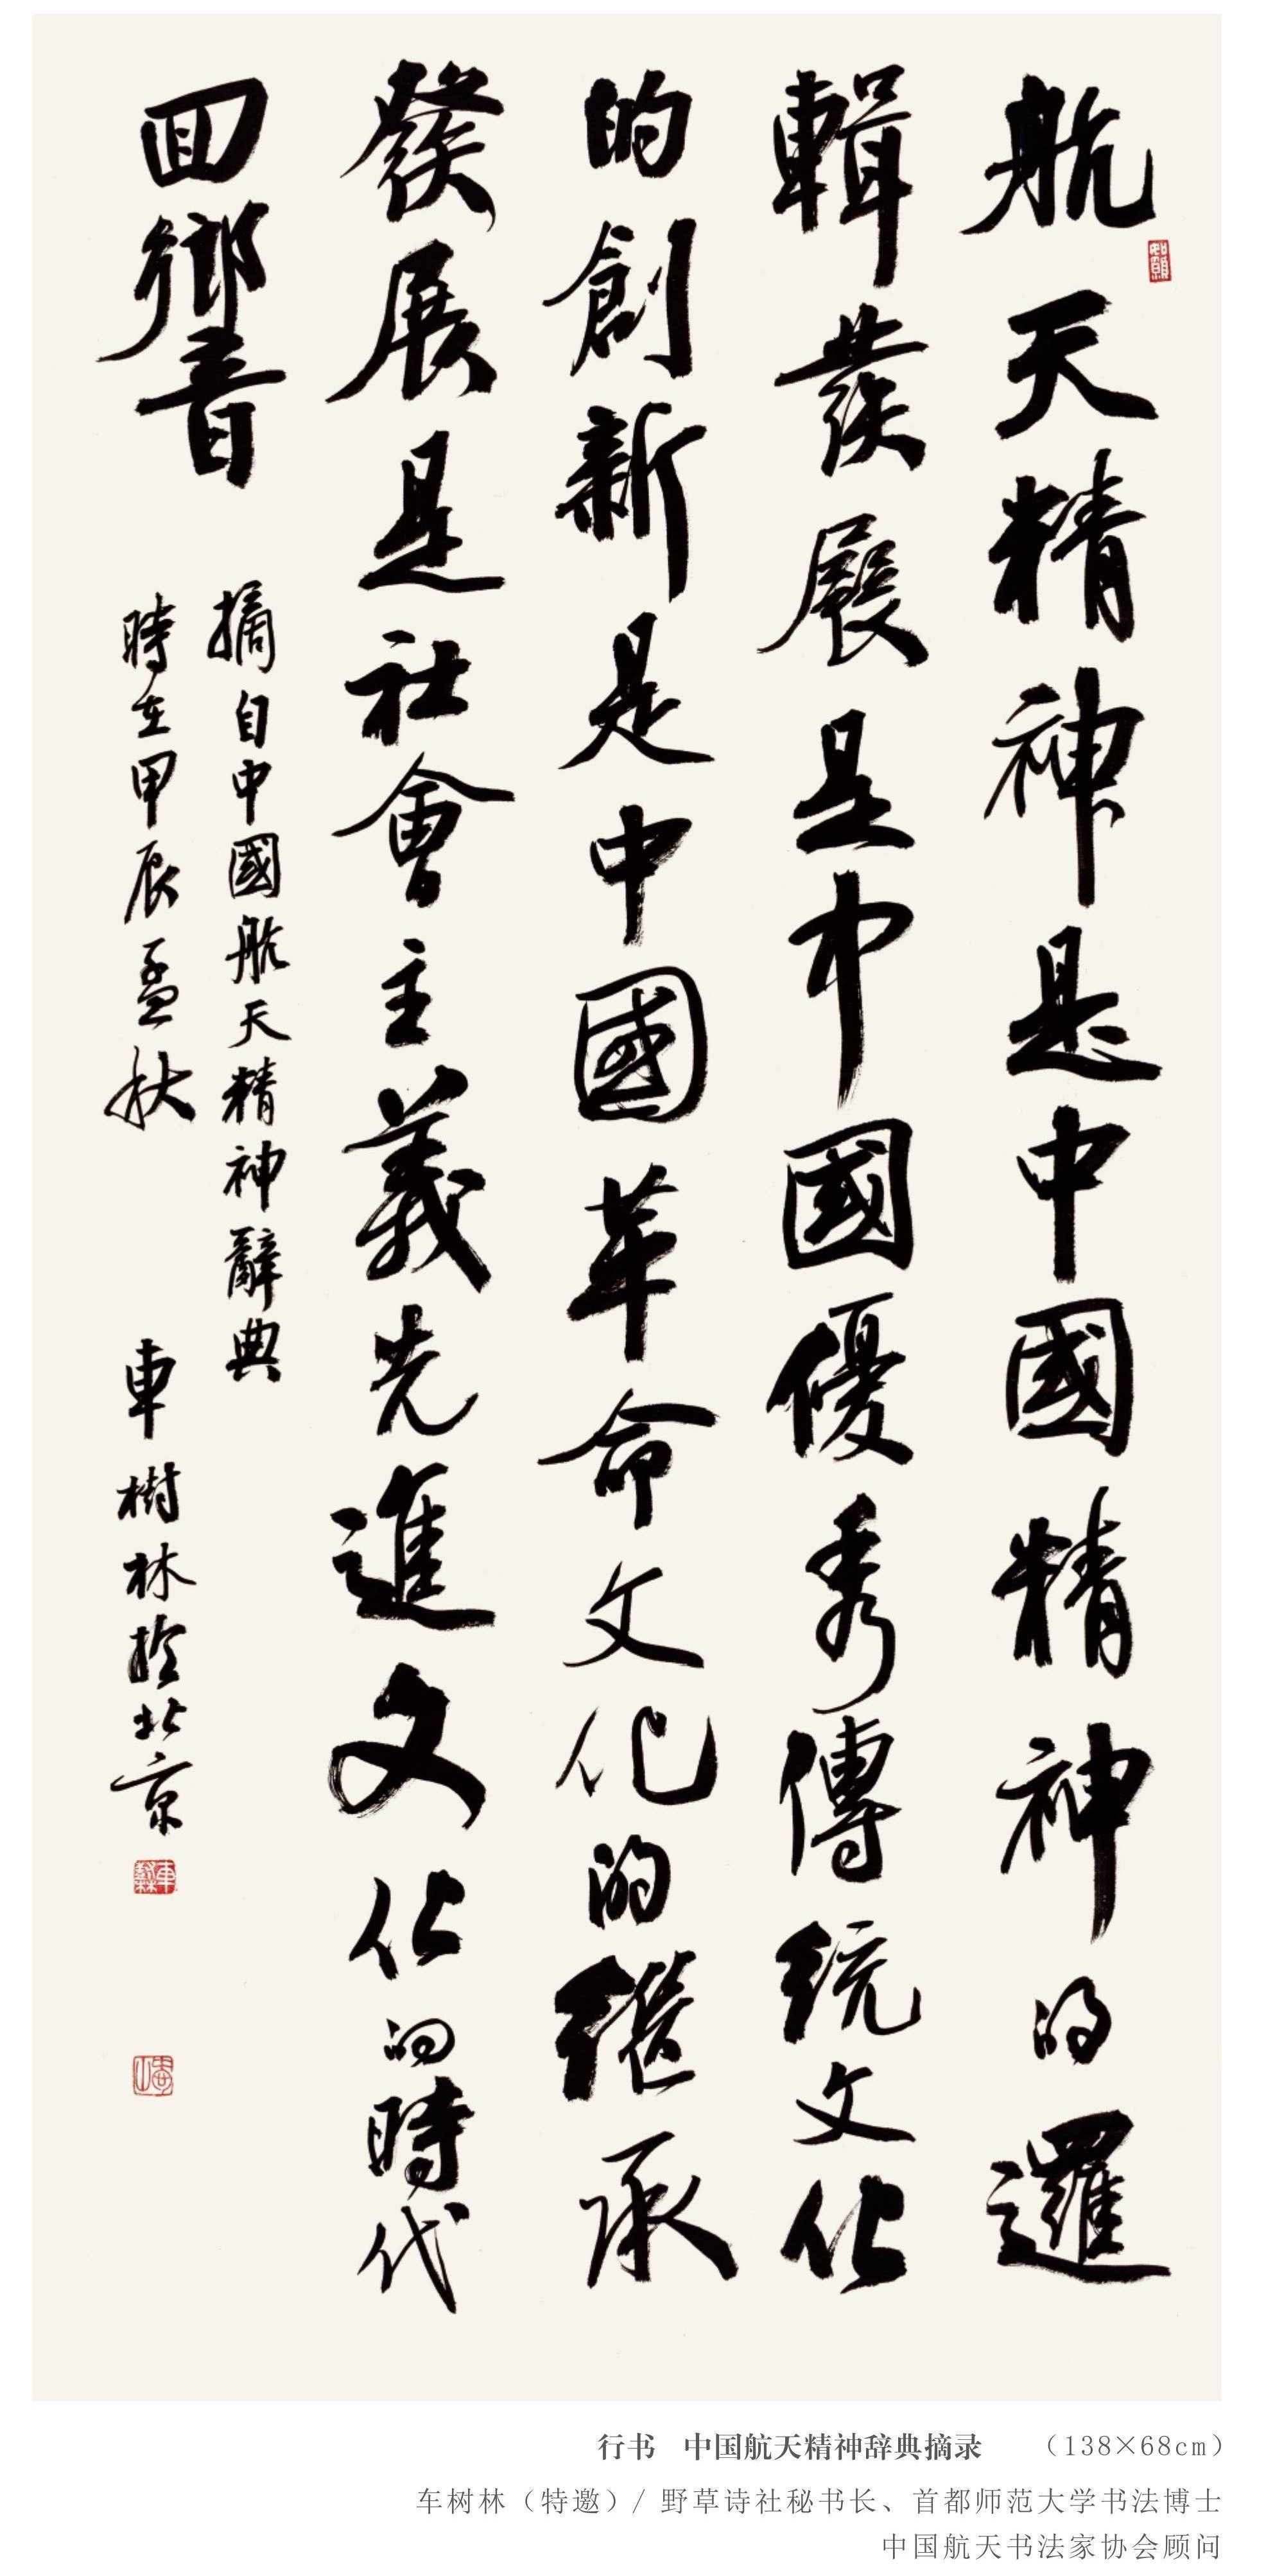 航天精神是中國精神的邏
輯發展是中國優秀傳統文化
的創新是中國革命文化的繼承
發展是社會主義先進文化的時代
回響
摘自中國航天精神辭典
時在甲辰孟秋 車樹林於北京
行书 中国航天精神辞典摘录 （138×68cm）
车树林（特邀）/ 野草诗社秘书长、首都师范大学书法博士
中国航天书法家协会顾问